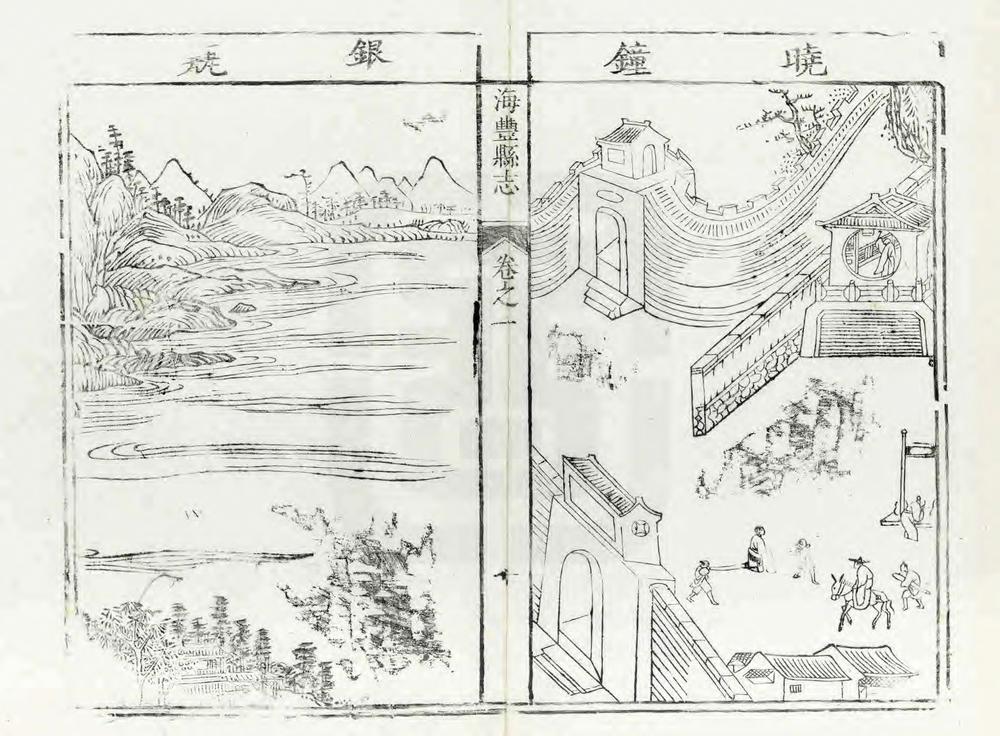 曉鐘
海豐縣志 卷之一
銀